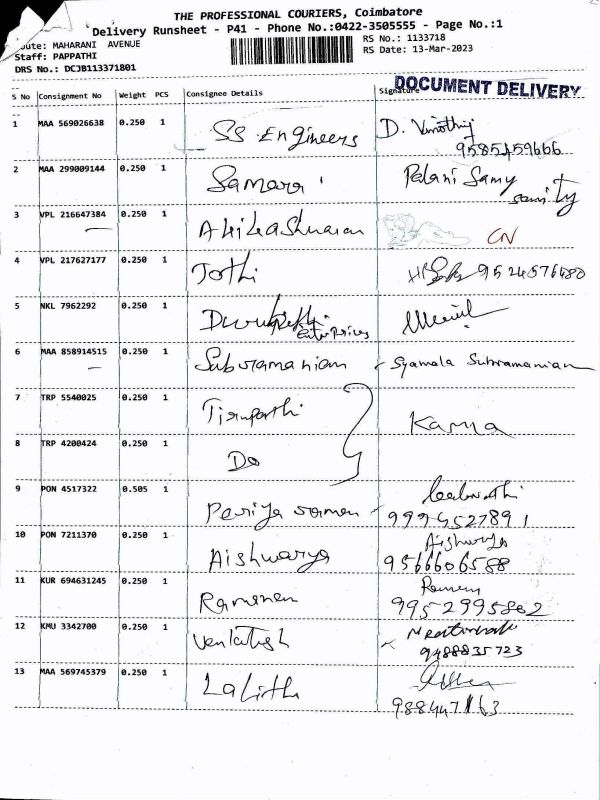 THE PROFESSIONAL COURIERS, Coimbatore
Delivery Runsheet - P41 - Phone No.:0422-3505555 - Page No.:1
Route: MAHARANI AVENUE
RS No.: 1133718
Staff: PAPPATHI
RS Date: 13-Mar-2023
DRS No.: DCJB113371801
DOCUMENT DELIVERY
S No Consignment No Weight PCS Consignee Details Signature
1 MAA 569026638 0.250 1 SS Engineers D. Vinothij
9585459666
2 MAA 299009144 0.250 1 Samara Palani Samy
3 VPL 216647384 0.250 1 Akilashwaran CN
4 VPL 217627177 0.250 1 Jothi 9524576480
5 NKL 7962292 0.250 1
Enterprises
6 MAA 858914515 0.250 1 Subramanian Syamala Subramanian
7 TRP 5540025 0.250 1 Tirupathi Kanna
8 TRP 4200424 0.250 1 Do
9 PON 4517322 0.505 1 Periya raman
9994527891
10 PON 7211370 0.250 1 Aishwarya Aishwarya
9566606588
11 KUR 694631245 0.250 1 Ramanan
9952995802
12 KMU 3342700 0.250 1 Venkatesh
9488835723
13 MAA 569745379 0.250 1 Lalitha